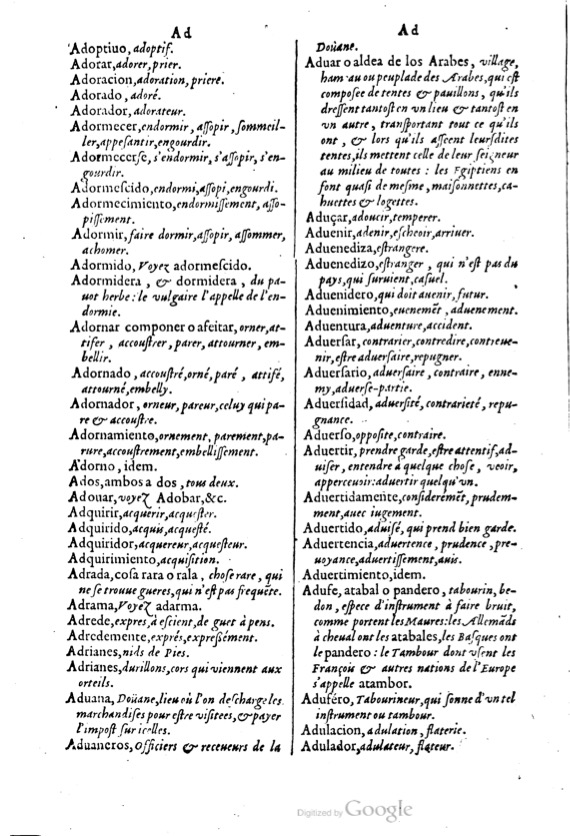 Ad
Adoptiuo, adoptif.
Adorar, adorer, prier.
Adoracion, adoration, priere.
Adorado, adoré.
Adorador, adorateur.
Adormecer, endormir, aſſopir, ſommeil-
ler, appeſantir, engourdir.
Adormecerſe, s'endormir, s'aſſopir, s'en-
gourdir.
Adormeſcido, endormi, aſſopi, engourdi.
Adormecimiento, endormiſſement, aſſo-
piſſement.
Adormir, faire dormir, aſſopir, aſſommer,
achomer.
Adormido, Voyez adormeſcido.
Adormidera, & dormidera, du pa-
uot herbe: le vulgaire l'appelle de l'en-
dormie.
Adornar componer o afeitar, orner, at-
tifer, accouſtrer, parer, attourner, em-
bellir.
Adornado, accouſtré, orné, paré, attifé,
attourné, embelly.
Adornador, orneur, pareur, celuy qui pa-
re & accouſtre.
Adornamiento, ornement, parement, pa-
rure, accouſtrement, embelliſſement.
Adorno, idem.
Ados, ambos a dos, tous deux.
Adouar, voyez Adobar, &c.
Adquirir, acquerir, acqueſter.
Adquirido, acquis, acqueſté.
Adquiridor, acquereur, acqueſteur.
Adquirimiento, acquiſition.
Adrada, coſa rara o rala, choſe rare, qui
ne ſe trouue gueres, qui n'eſt pas frequēte.
Adrama, Voyez adarma.
Adrede, expres, à eſcient, de guet à pens.
Adredemente, exprés, expreſſément.
Adrianes, nids de Pies.
Adrianes, durillons, cors qui viennent aux
orteils.
Aduana, Doüane, lieu où l'on deſcharge les
marchandiſes pour eſtre viſitees, & payer
l'impoſt ſur icelles.
Aduaneros, Officiers & receueurs de la
Ad
Doüane.
Aduar o aldea de los Arabes, village,
hameau ou peuplade des Arabes, qui eſt
compoſee de tentes & pauillons, qu'ils
dreſſent tantoſt en vn lieu & tantoſt en
vn autre, tranſportant tout ce qu'ils
ont, & lors qu'ils aſſeent leurſdites
tentes, ils mettent celle de leur ſeigneur
au milieu de toutes: les Egiptiens en
font quaſi de meſme, maiſonnettes, ca-
huettes & logettes.
Aduçar, adoucir, temperer.
Aduenir, adenir, eſcheoir, arriuer.
Aduenediza, eſtrangere.
Aduenedizo, eſtranger, qui n'eſt pas du
pays, qui ſuruient, caſuel.
Aduenidero, qui doit auenir, futur.
Aduenimiento, euenemēt, aduenement.
Aduentura, aduenture, accident.
Aduerſar, contrarier, contredire, contreue-
nir, eſtre aduerſaire, repugner.
Aduerſario, aduerſaire, contraire, enne-
my, aduerſe-partie.
Aduerſidad, aduerſité, contrarieté, repu-
gnance.
Aduerſo, oppoſite, contraire.
Aduertir, prendre garde, eſtre attentif, ad-
uiſer, entendre à quelque choſe, veoir,
apperceuoir: aduertir quelqu'vn.
Aduertidamente, conſiderémēt, prudem-
ment, auec iugement.
Aduertido, aduiſé, qui prend bien garde.
Aduertencia, aduertence, prudence, pre-
uoyance, aduertiſſement, auis.
Aduertimiento, idem.
Adufe, atabal o pandero, tabourin, be-
don, eſpece d'inſtrument à faire bruit,
comme portent les Maures: les Allemāds
à cheual ont les atabales, les Baſques ont
le pandero: le Tambour dont vſent les
François & autres nations de l'Europe
s'appelle atambor.
Adufero, Tabourineur, qui ſonne d'vn tel
inſtrument ou tambour.
Adulacion, adulation, flaterie.
Adulador, adulateur, flateur.
Digitized by Google